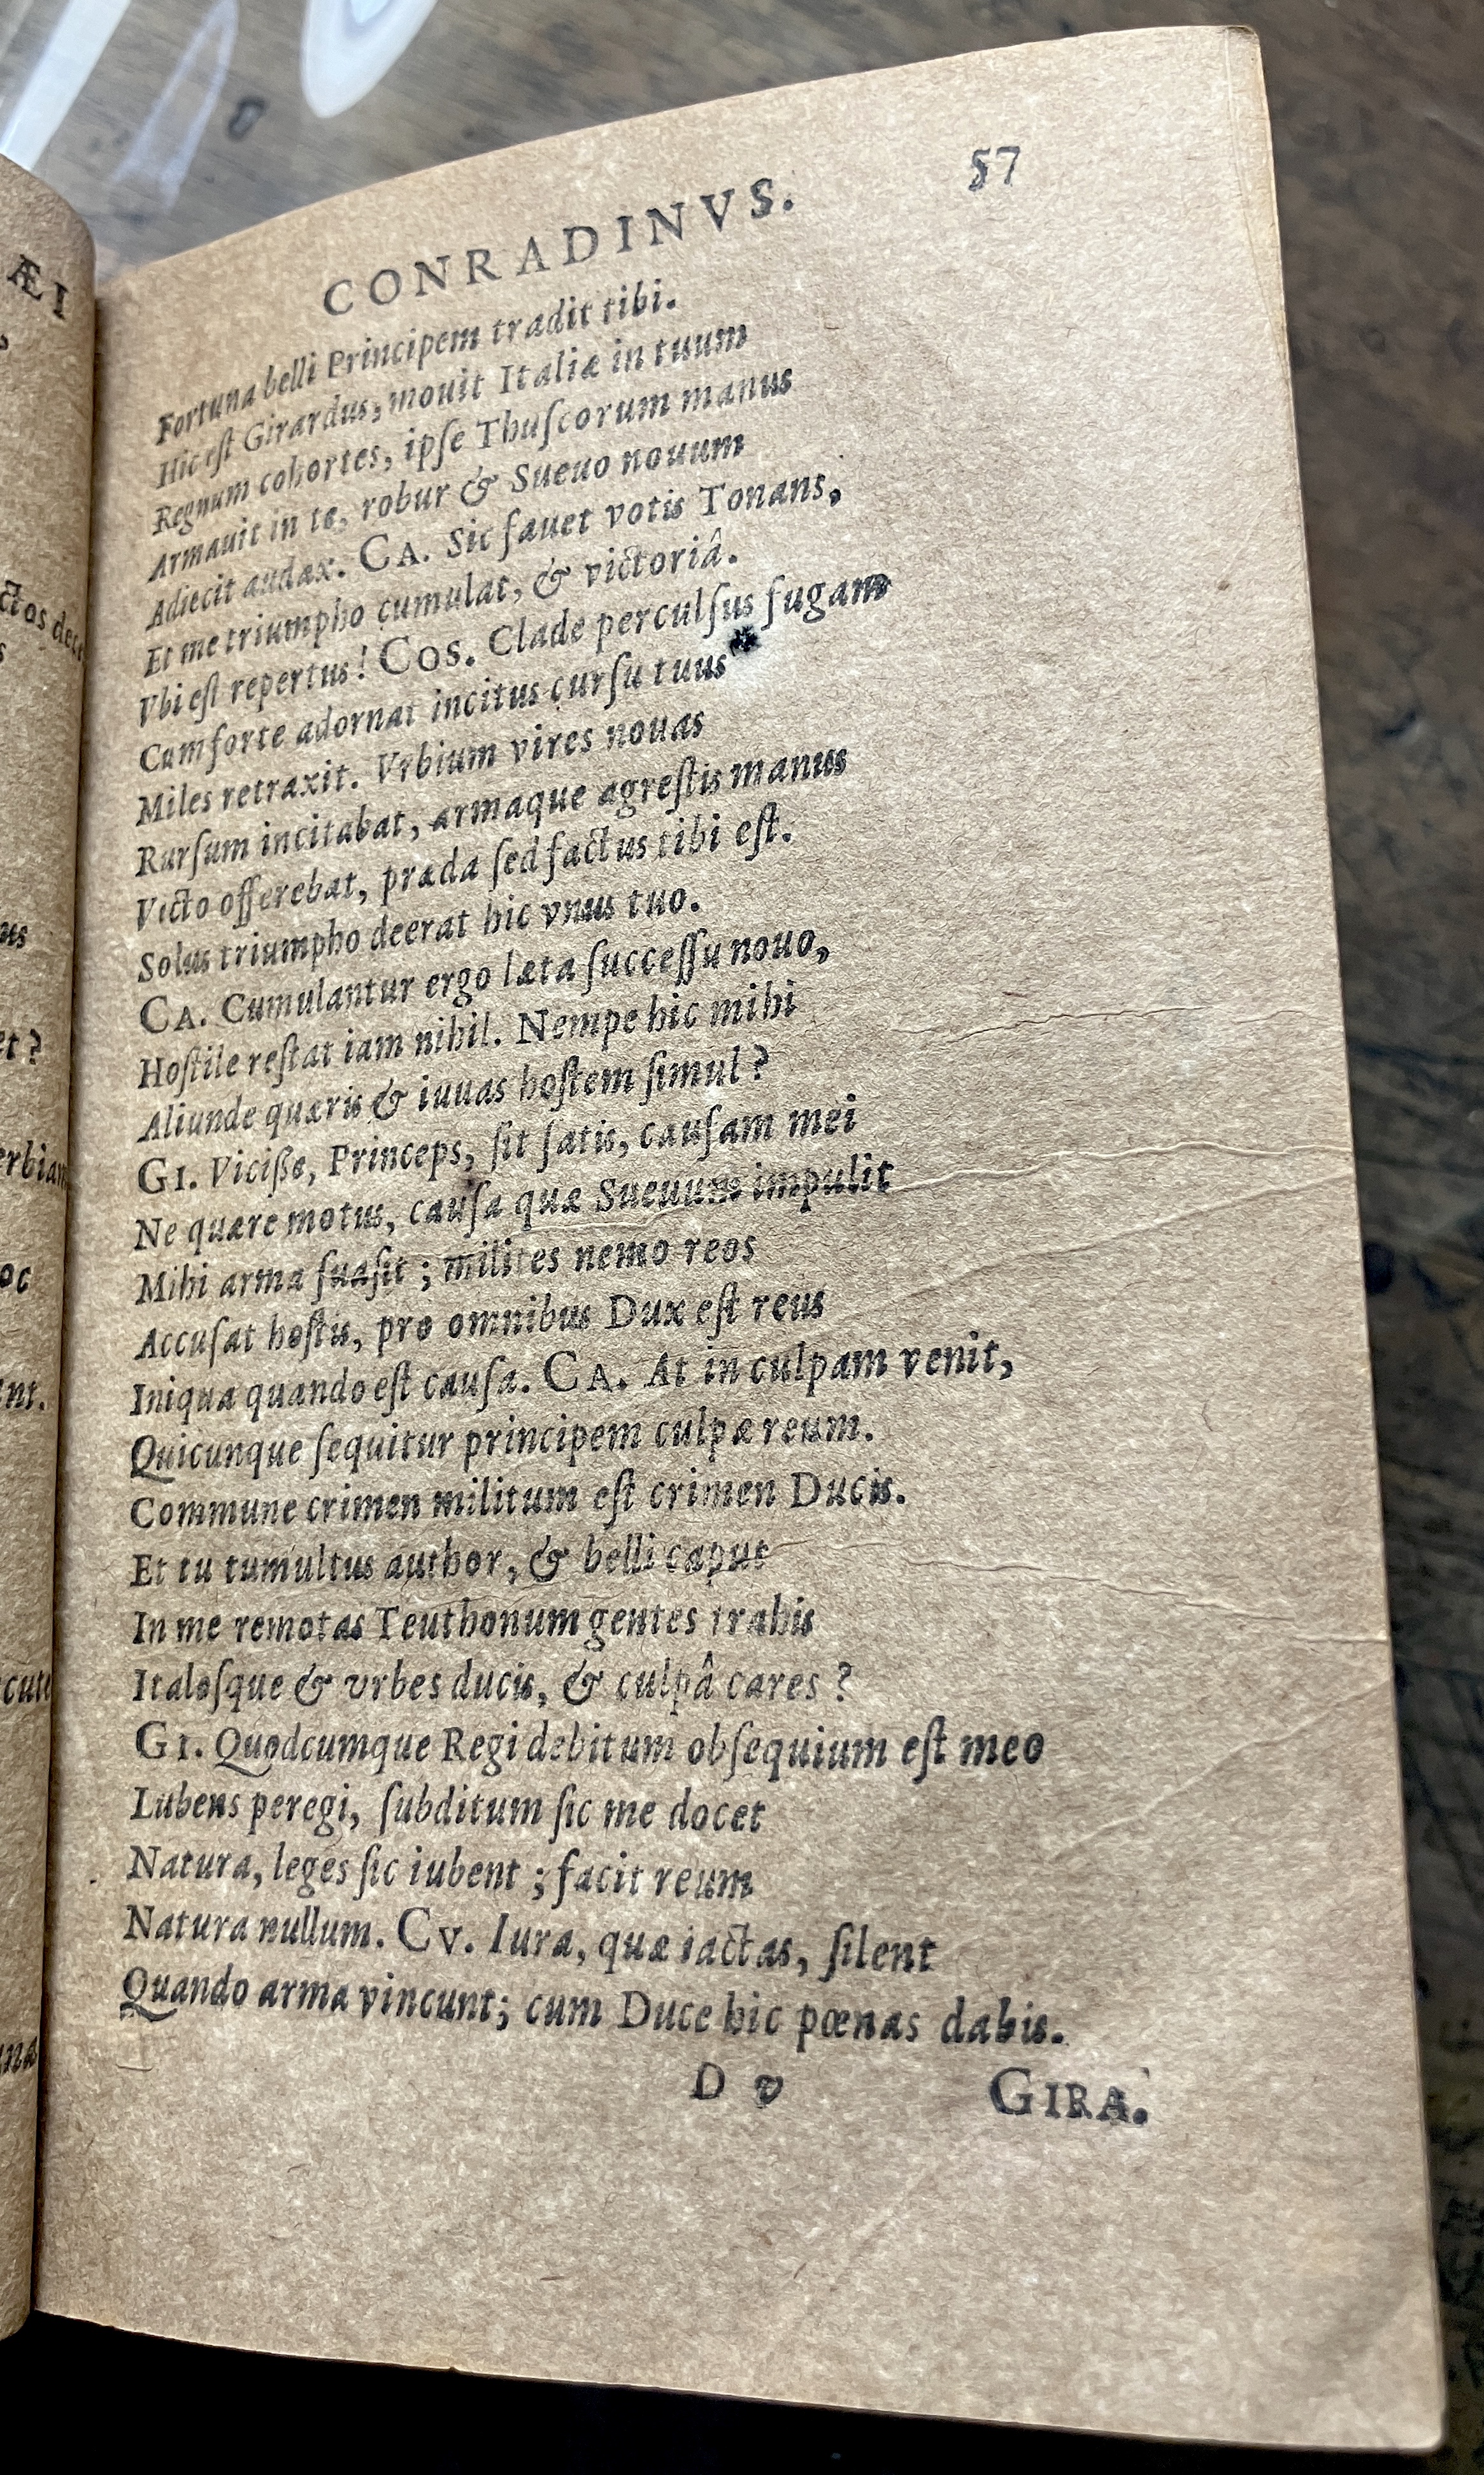 CONRADINVS. 57
Fortuna belli Principem tradit tibi.
Hic eſt Girardus, mouit Italiæ in tuum
Regnum cohortes, ipſe Thuſcorum manus
Armauit in te, robur & Sueuo nouum
Adiecit audax. CA. Sic fauet votis Tonans,
Et me triumpho cumulat, & victoriâ.
Vbi eſt repertus! COS. Clade perculſus fugam
Cum forte adornat incitus curſu tuus
Miles retraxit. Vrbium vires nouas
Rurſum incitabat, armaque agreſtis manus
Victo offerebat, præda ſed factus tibi eſt.
Solus triumpho deerat hic vnus tuo.
CA. Cumulantur ergo læta ſucceſſu nouo,
Hoſtile reſtat iam nihil. Nempe hic mihi
Aliunde quæris & iuuas hoſtem ſimul?
GI. Viciſſe, Princeps, ſit ſatis, cauſam mei
Ne quære motus, cauſa quæ Sueuum impulit
Mihi arma ſuaſit; milites nemo reos
Accuſat hoſtis, pro omnibus Dux eſt reus
Iniqua quando eſt cauſa. CA. At in culpam venit,
Quicunque ſequitur principem culpæ reum.
Commune crimen militum eſt crimen Ducis.
Et tu tumultus author, & belli caput
In me remotas Teuthonum gentes trahis
Italoſque & vrbes ducis, & culpâ cares?
GI. Quodcumque Regi debitum obſequium eſt meo
Lubens peregi, ſubditum ſic me docet
Natura, leges ſic iubent; facit reum
Natura nullum. CV. Iura, quæ iactas, ſilent
Quando arma vincunt; cum Duce hic pœnas dabis.
D v GIRA.
ÆI
us
et?
erbian
oc
nt.